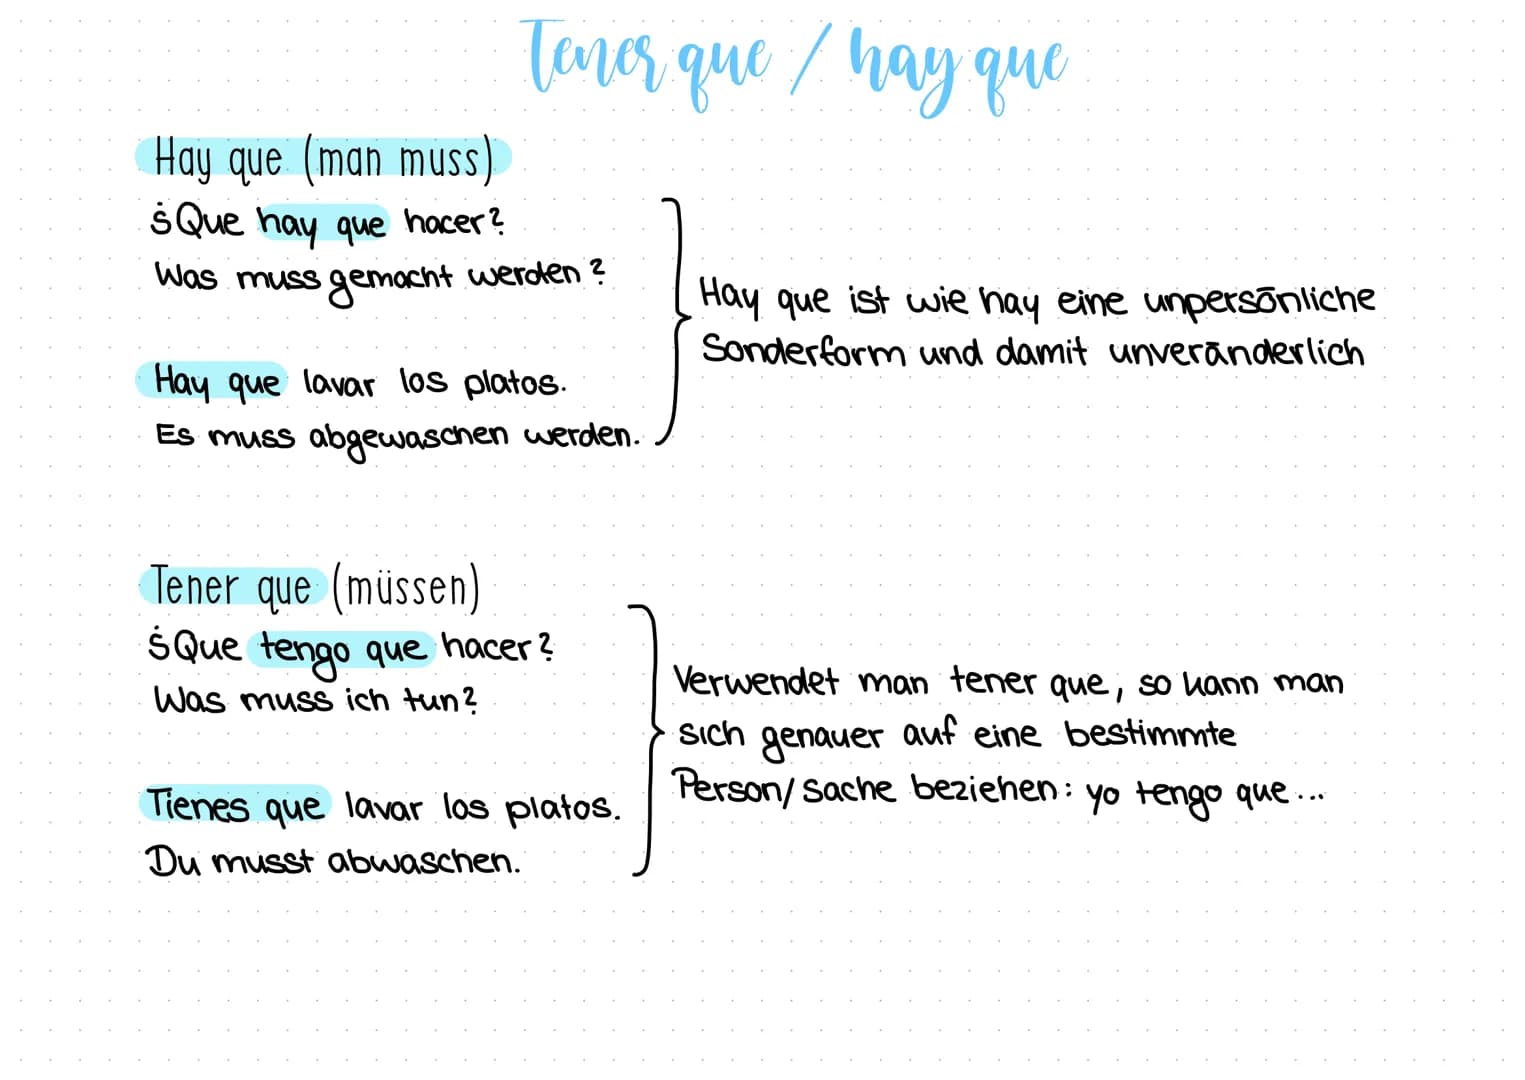 Tener que / hay que
Hay que (man muss)
¿Que hay que hacer?
Was muss gemacht werden?
Hay que lavar los platos.
Es muss abgewaschen werden.
Hay que ist wie hay eine unpersönliche
Sonderform und damit unveränderlich
Tener que (müssen)
¿Que tengo que hacer?
Was muss ich tun?
Tienes que lavar los platos.
Du musst abwaschen.
Verwendet man tener que, so kann man
sich genauer auf eine bestimmte
Person/Sache beziehen: yo tengo que...